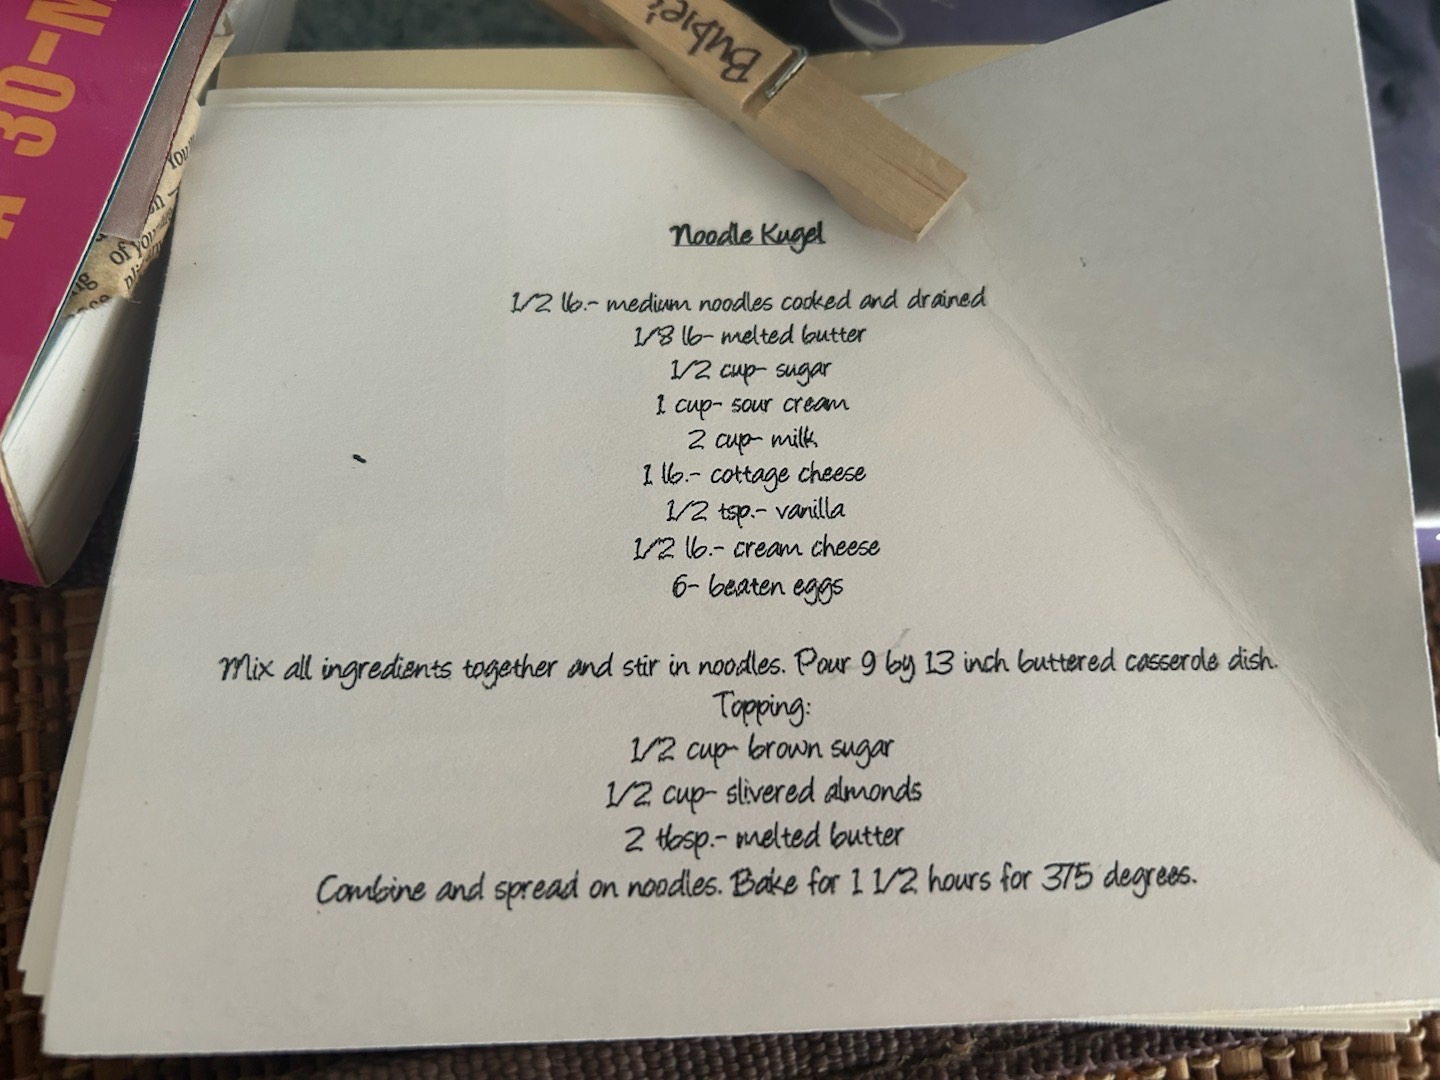 Bubie's
A 30-M
You'll
of your
Noodle Kugel
1/2 lb.- medium noodles cooked and drained
1/8 lb- melted butter
1/2 cup- sugar
1 cup- sour cream
2 cup- milk
1 lb.- cottage cheese
1/2 tsp.- vanilla
1/2 lb.- cream cheese
6- beaten eggs
Mix all ingredients together and stir in noodles. Pour 9 by 13 inch buttered casserole dish.
Topping:
1/2 cup- brown sugar
1/2 cup- slivered almonds
2 tbsp.- melted butter
Combine and spread on noodles. Bake for 1 1/2 hours for 375 degrees.